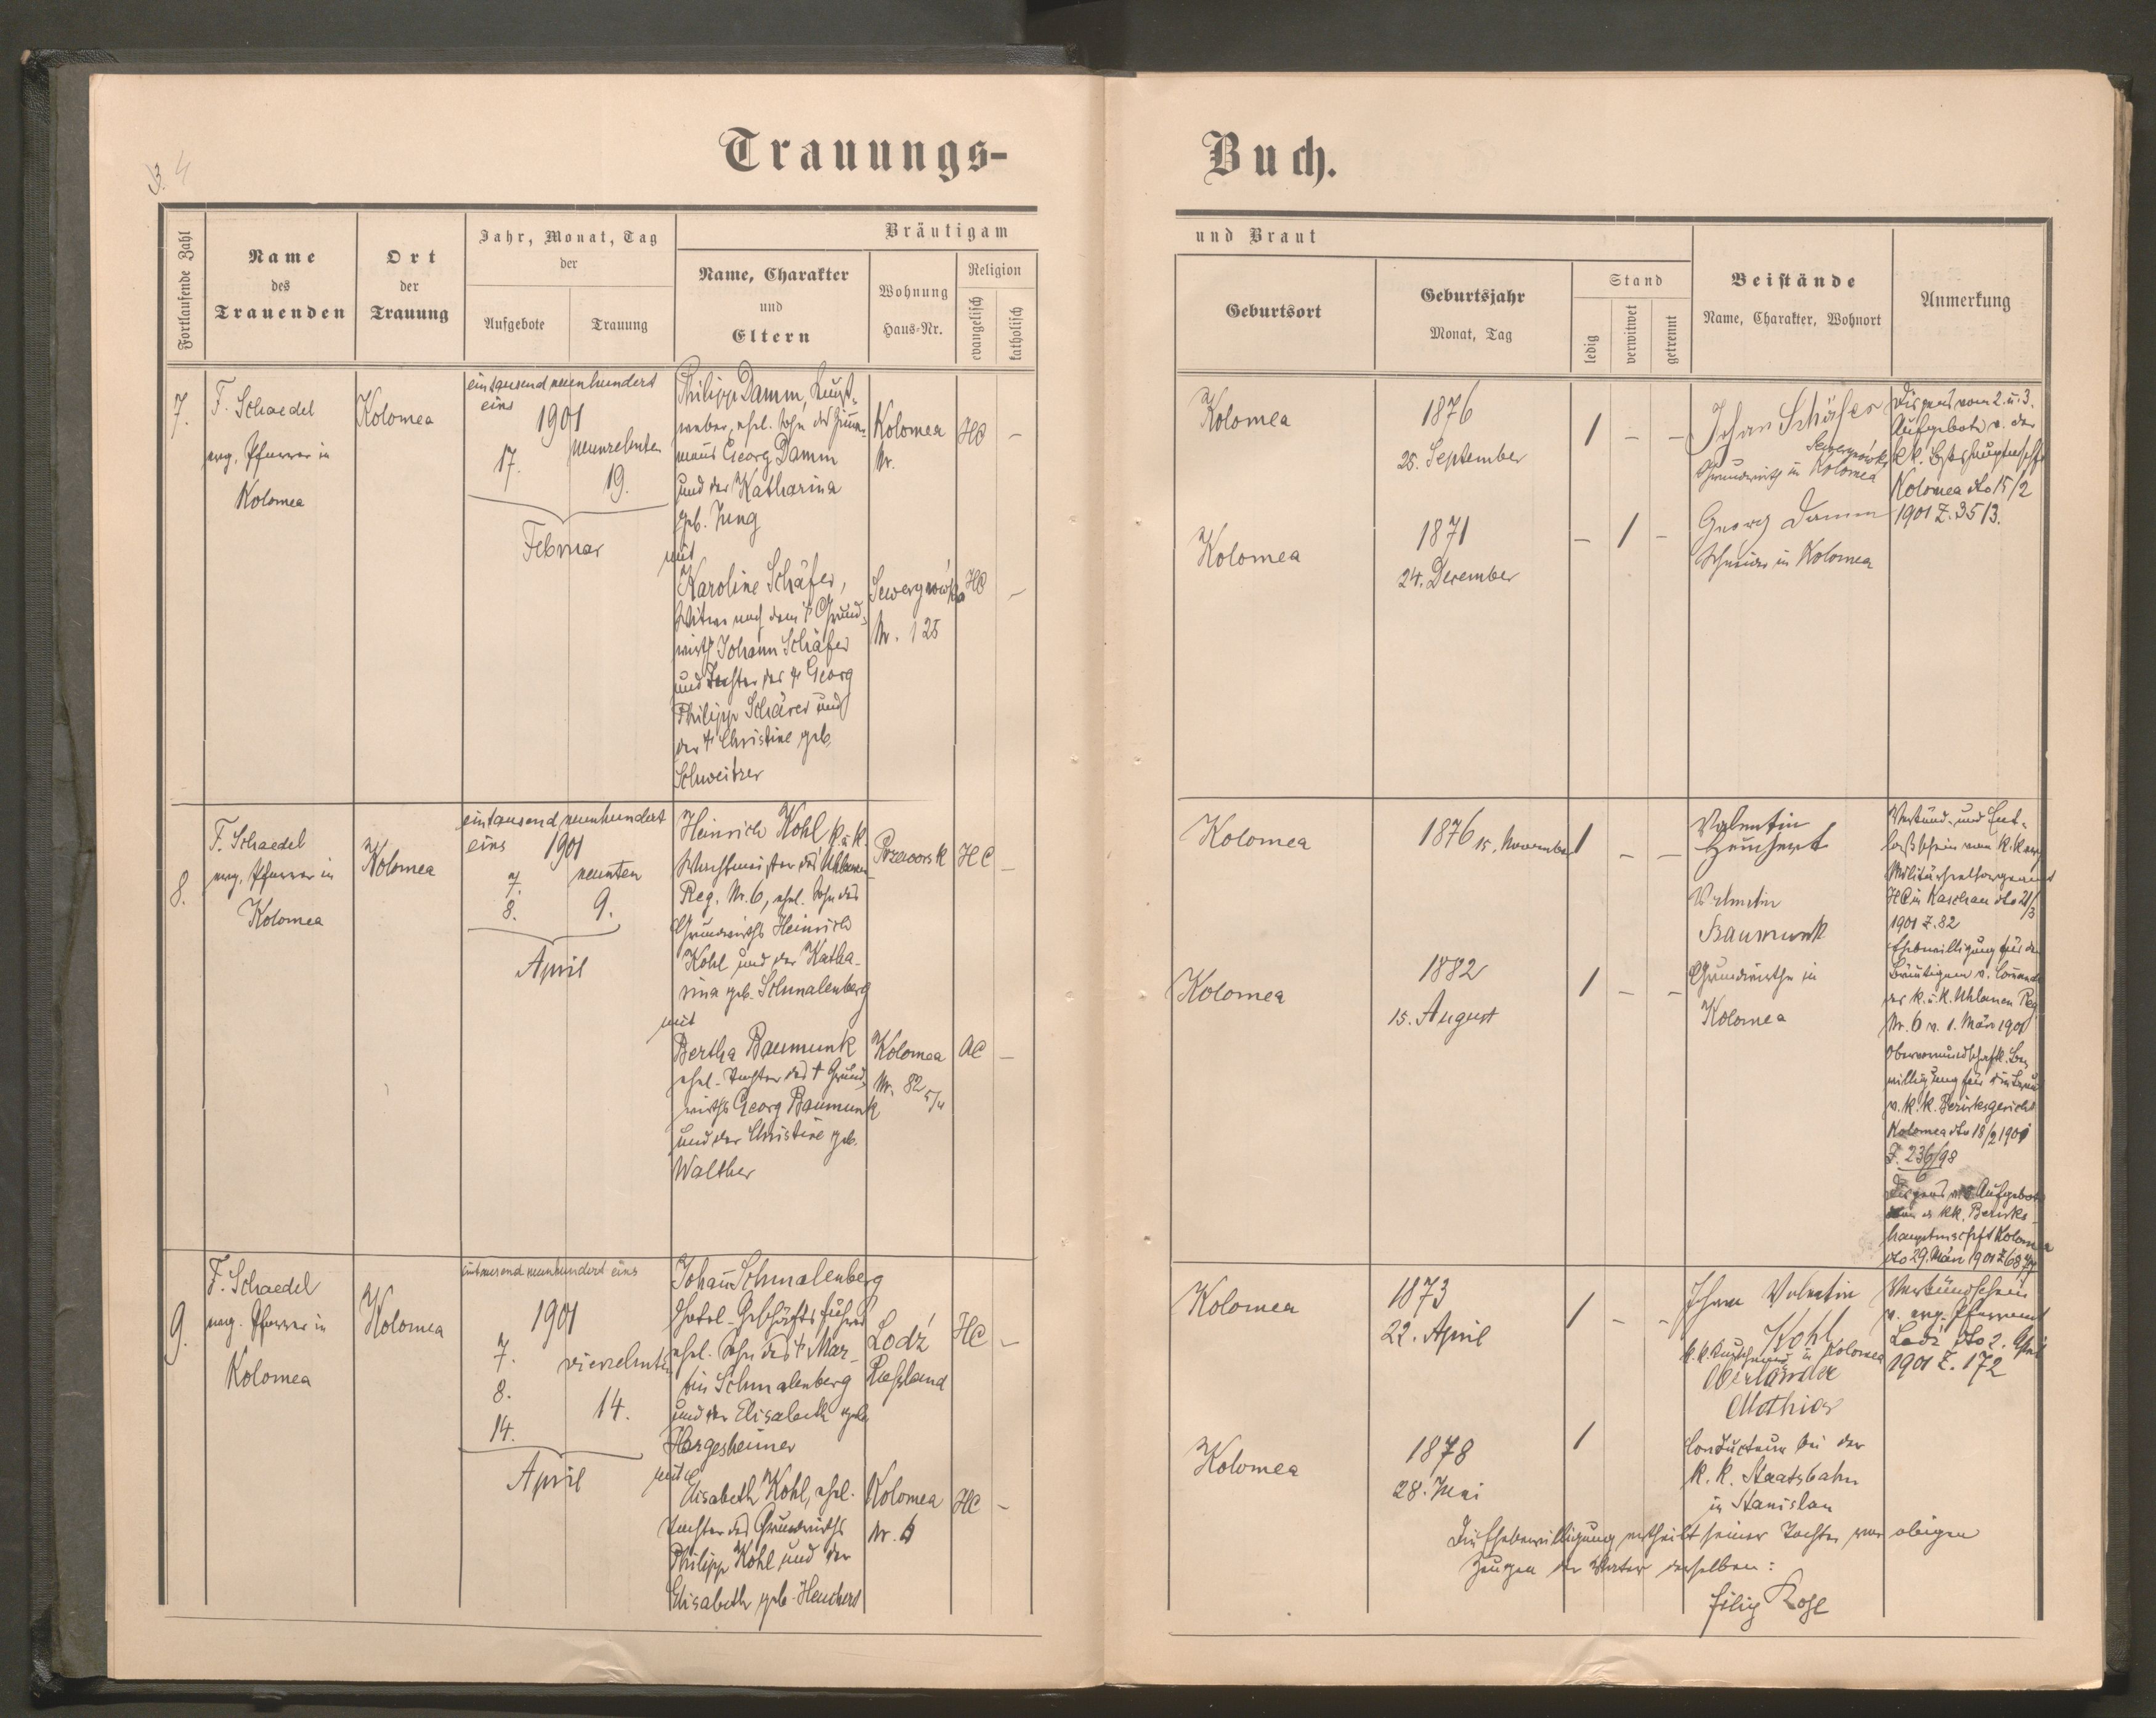 3. 4
Trauungs-
Buch.
Fortlaufende Zahl
Name
des
Trauenden
Ort
der
Trauung
Jahr, Monat, Tag
der
Aufgebote
Trauung
Bräutigam
Name, Charakter
und
Eltern
Wohnung
Haus-Nr.
Religion
evangelisch
katholisch
und Braut
Geburtsort
Geburtsjahr
Monat, Tag
Stand
ledig
verwitwet
getrennt
Beistände
Name, Charakter, Wohnort
Anmerkung
7.
F. Schaedel
evg. Pfarrer in
Kolomea
Kolomea
eintausend neunhundert
eins
1901
17.
neunzehnten
19.
Februar
Philipp Damm,
ehel. Sohn des
Georg Damm
und der Katharina
geb. Jung
Kolomea
Nr.
HC
–
mit
Karoline Schäfer,
Witwe nach dem † Grund-
wirth Johann Schäfer
und Tochter des † Georg
Philipp Schärer und
der † Christine geb.
Schweitzer
Nr. 125
HC
–
Kolomea
1876
25. September
/ – –
Kolomea
1871
24. December
– / –
Johan Schäfer
Grundwirth in Kolomea
Georg Damm
in Kolomea
Dispens vom 2. u. 3.
Aufgebote v. der
k.k. Bzkshauptmschft
Kolomea dto 15/2
1901 Z. 3513.
8.
F. Schaedel
evg. Pfarrer in
Kolomea
Kolomea
eintausend neunhundert
eins
1901
7.
8.
neunten
9.
April
Heinrich Kohl k.u.k.
Wachtmeister des Uhlanen
Reg. Nr. 6, ehel. Sohn des
Grundwirths Heinrich
Kohl und der Katha-
rina geb. Schmalenberg
Przeworsk
HC
–
mit
Bertha Baumunk
ehel. Tochter des † Grund-
wirths Georg Baumunk
und der Christine geb.
Walther
Kolomea
Nr. 82
AC
–
Kolomea
1876 15. November
/ – –
Kolomea
1882
15. August
/ – –
Valentin
Valentin
Baumunk
Grundwirthe in
Kolomea
Verkünd- und Ent-
laßschein vom k.k. evg
Militärseelsorgeamt
HC in Kaschau dto 21/3
1901 Z. 82
Ehebewilligung für den
Bräutigam v.
des k.u.k. Uhlanen Reg
Nr. 6 v. 1. März 1901
Obervormundschaftl. Be-
willigung für die Braut
v. k.k. Bezirksgericht
Kolomea dto 18/2 1901
Z. 236/98
6
Dispens v. 3 Aufgebot
k.k. Bezirks-
hauptmschft Kolomea
dto 29. März 1901
9.
F. Schaedel
evg. Pfarrer in
Kolomea
Kolomea
eintausend neunhundert eins
1901
7.
8.
14.
vierzehnten
14.
April
Johann Schmalenberg
Hotel-Geschäftsführer
ehel. Sohn des † Mar-
tin Schmalenberg
und der Elisabeth geb.
Hargesheimer
Lodź
Rußland
HC
–
mit
Elisabeth Kohl, ehel.
Tochter des Grundwirths
Philipp Kohl und der
Elisabeth geb. Heuchert
Kolomea
Nr.
HC
–
Kolomea
1873
22. April
/ – –
Kolomea
1878
28. Mai
/
Johann Valentin
Kohl
in Kolomea
Oberländer
Mathias
Conducteur bei der
k.k. Staatsbahn
in Stanislau
Verkündschein
v. evg. Pfarramt
Lodź dto 2. April
1901 Z. 172
Die Ehebewilligung ertheilt seiner Tochter vor obigen
Zeugen der Vater derselben:
Filip Kohl